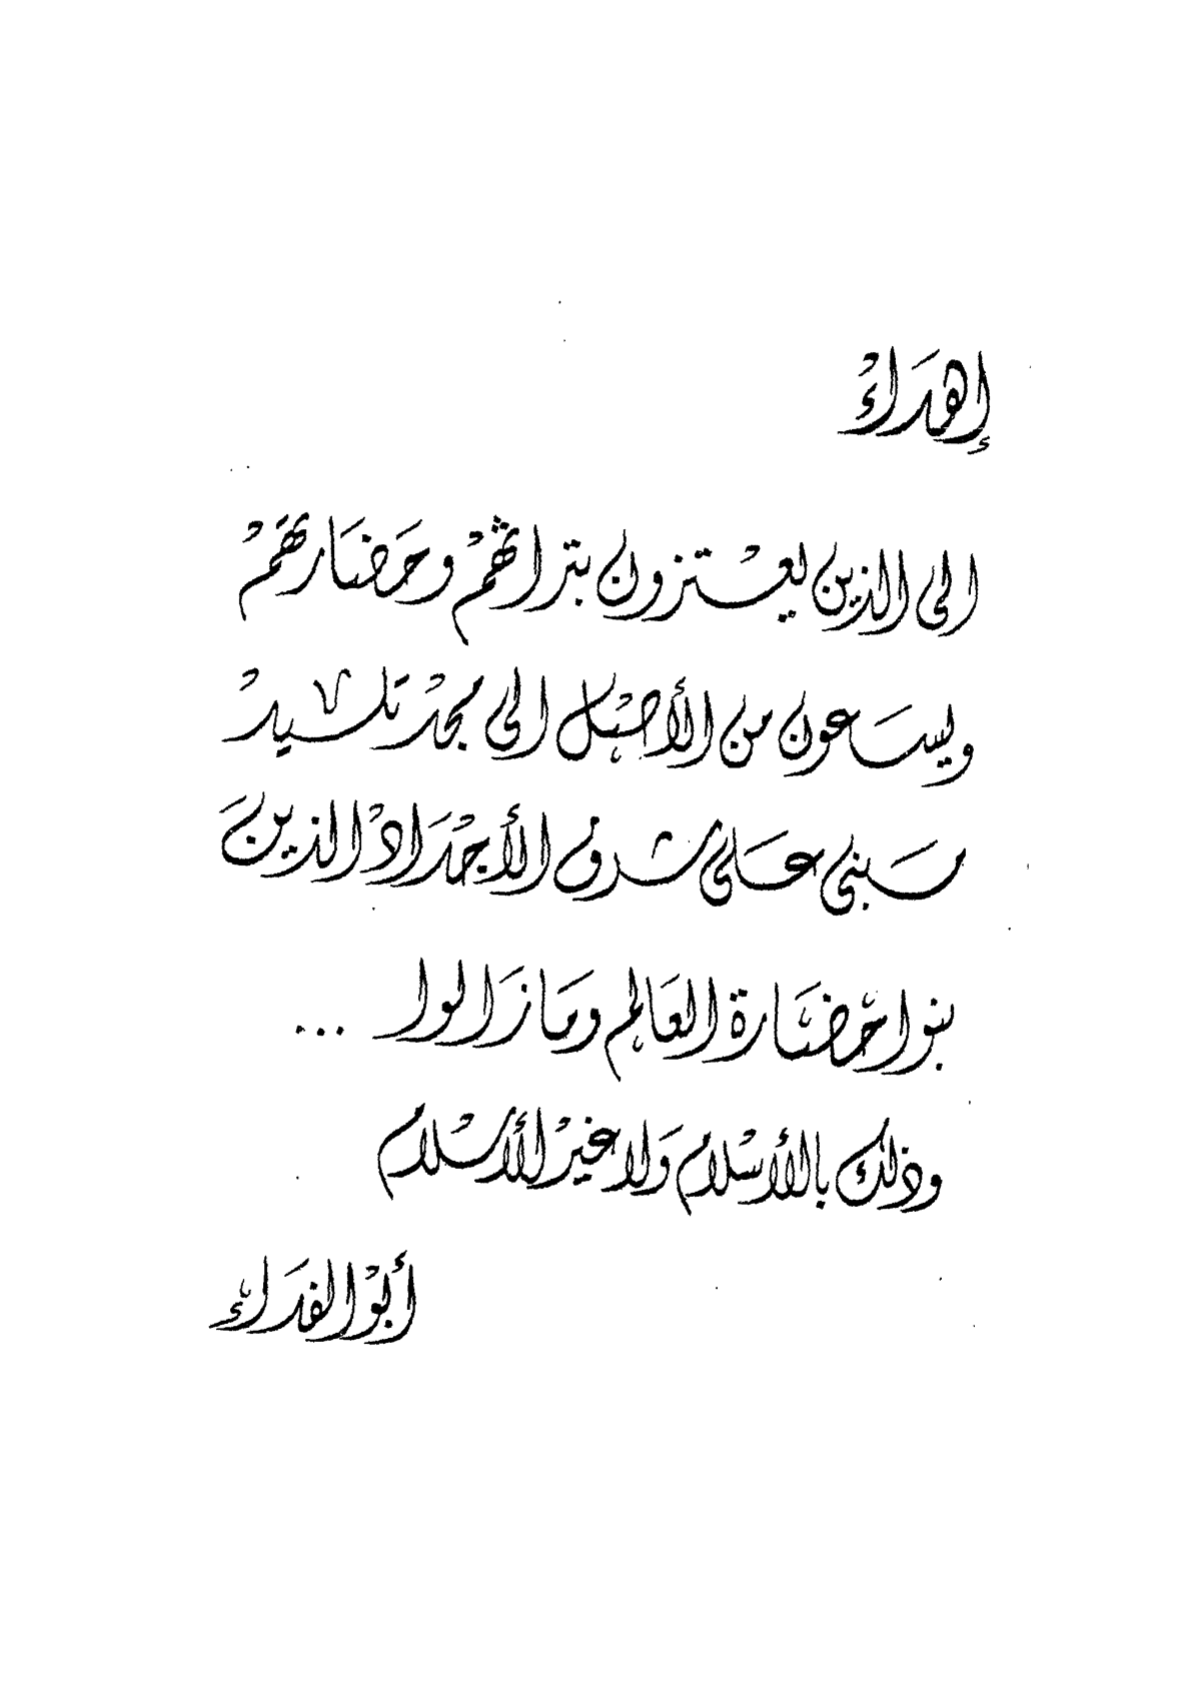 إهداء
الى الذين يعتزون بتراثهم وحضارتهم
ويسعون من الأصل الى مجد تليد
مبني على شرف الأجداد الذين
بنوا حضارة العالم وما زالوا ...
وذلك بالأسلام ولا غير الأسلام
أبو الفداء